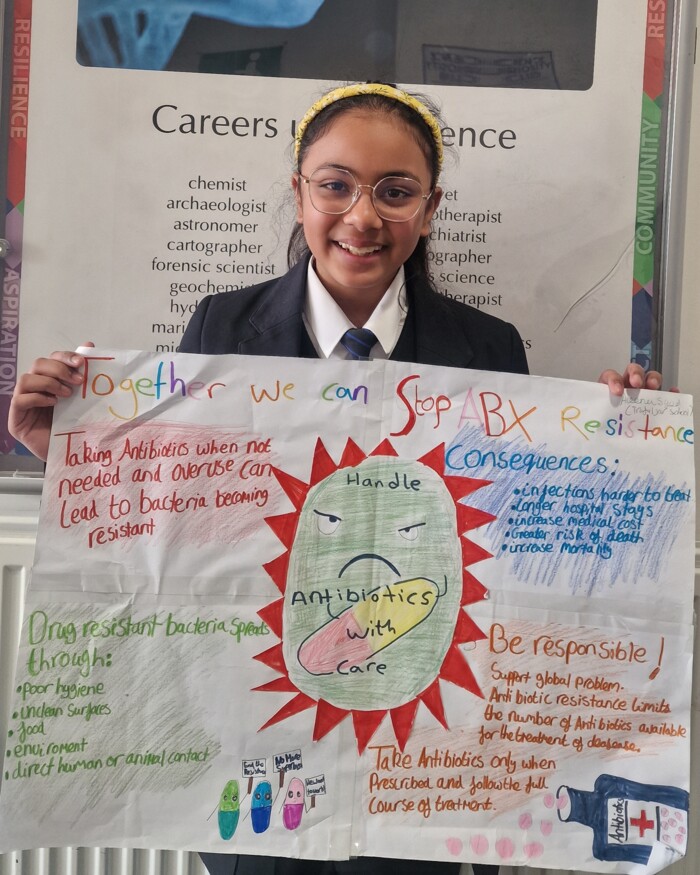 RESILIENCE
ASPIRATION
RES
COMMUNITY
Careers
ence
chemist
archaeologist
astronomer
cartographer
forensic scientist
Together we can Stop ABX Resistance
Taking Antibiotics when not
needed and overuse can
Lead to bacteria becoming
resistant
Consequences:
• infections harder to treat
• Longer hospital stays
• increase medical cost
• Greater risk of death
• increase mortality
Handle
Antibiotics
with
care
Drug resistant bacteria spreads
through:
• Poor hygiene
• unclean surfaces
• food
• enviroment
• direct human or animal contact
Be responsible!
Support global problem.
Antibiotic resistance limits
the number of Antibiotics available
for the treatment of deasease.
Take Antibiotics only when
Prescribed and follow the full
Course of treatment.
End the
No More
Antibiotic